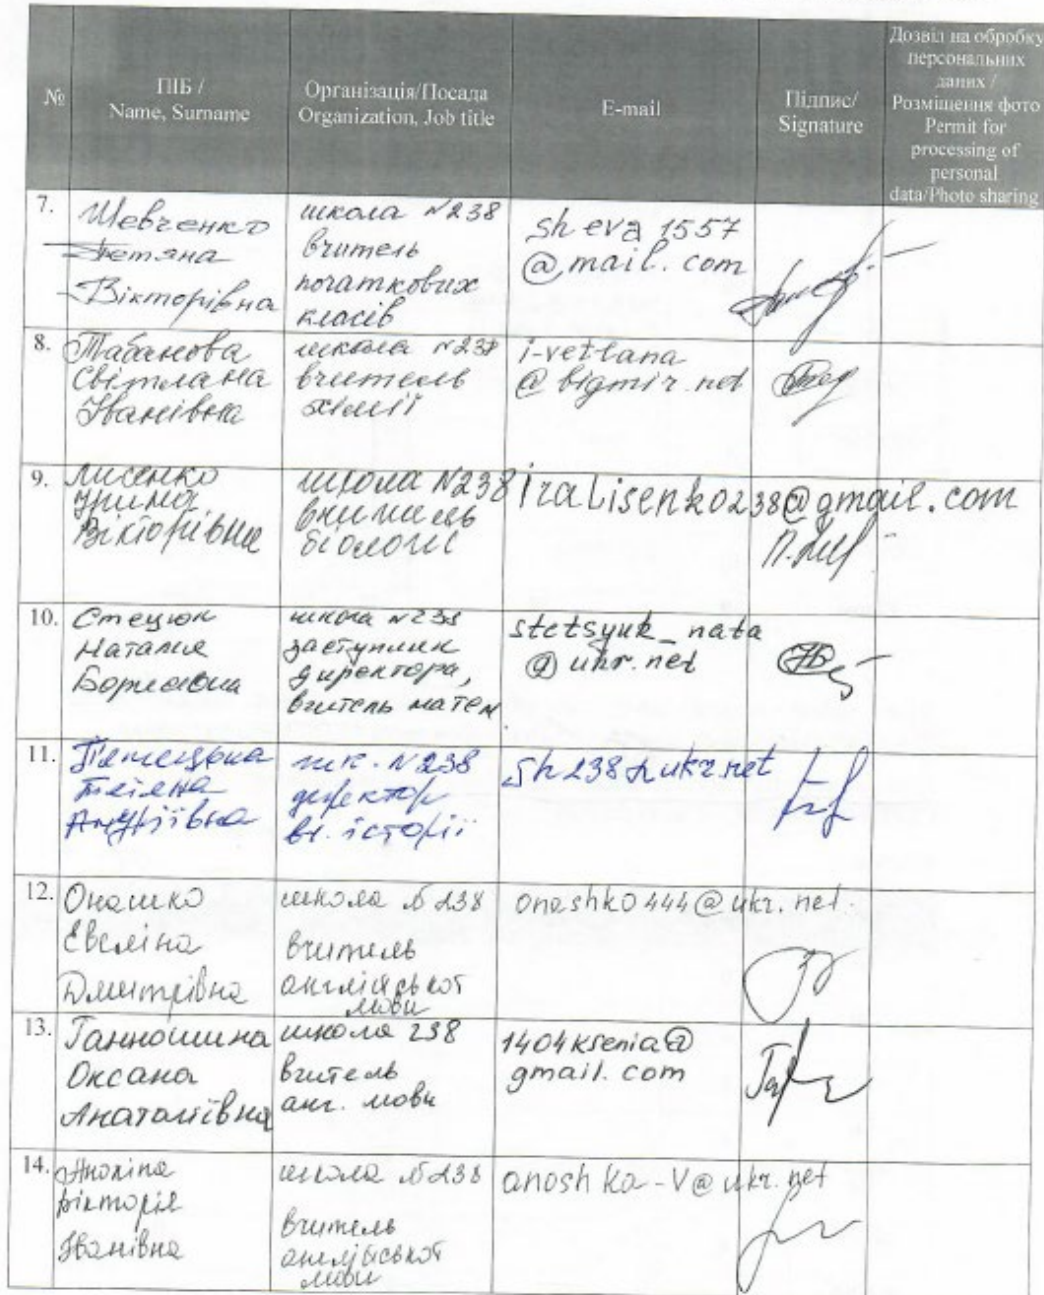 №
ПІБ /
Name, Surname
Організація/Посада
Organization, Job title
E-mail
Підпис/
Signature
Дозвіл на обробку
персональних
даних /
Розміщення фото
Permit for
processing of
personal
data/Photo sharing
7.
Шевченко
Тетяна
Вікторівна
школа №238
вчитель
початкових
класів
sheva1557
@mail.com
8.
Табанова
Світлана
Іванівна
школа №238
вчитель
хімії
i-vetlana
@bigmir.net
9.
Лисенко
Ірина
Вікторівна
школа №238
вчитель
біології
iraLisenko238@gmail.com
10.
Стецюк
Наталія
Борисівна
школа №238
заступник
директора,
вчитель матем
stetsyuk_nata
@ukr.net
11.
Тетяна
Андріївна
шк. №238
директор
вч. історії
12.
Онашко
Евеліна
Дмитрівна
школа №238
вчитель
англійської
мови
onashko444@ukr.net
13.
Ганношина
Оксана
Анатоліївна
школа 238
вчитель
анг. мови
1404ksenia@
gmail.com
14.
Анохіна
Вікторія
Іванівна
школа №238
вчитель
англійської
мови
anoshka-v@ukr.net